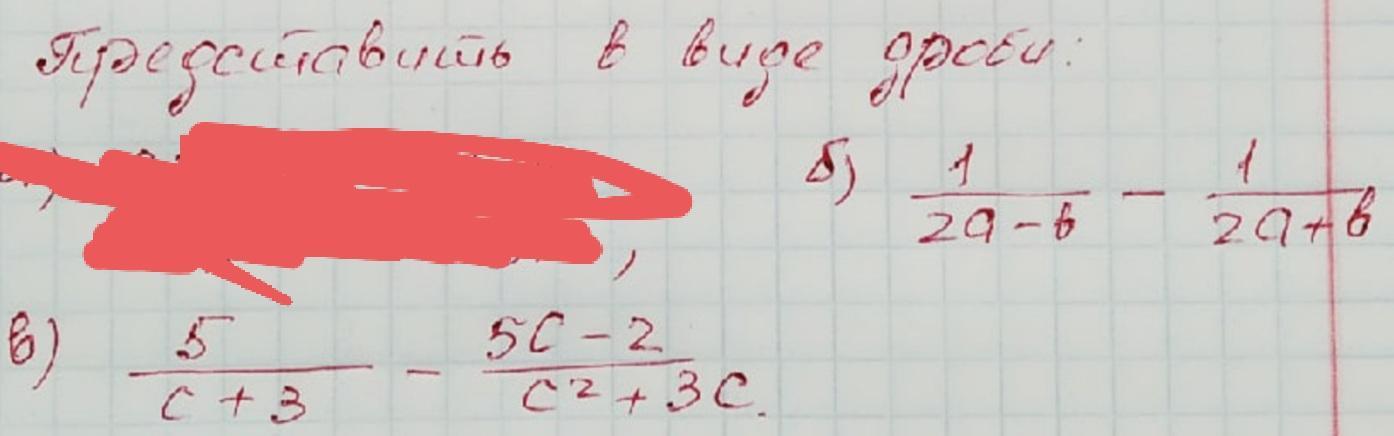 Представить в виде дроби:
б) 1/(2a-b) - 1/(2a+b)
в) 5/(c+3) - (5c-2)/(c²+3c).